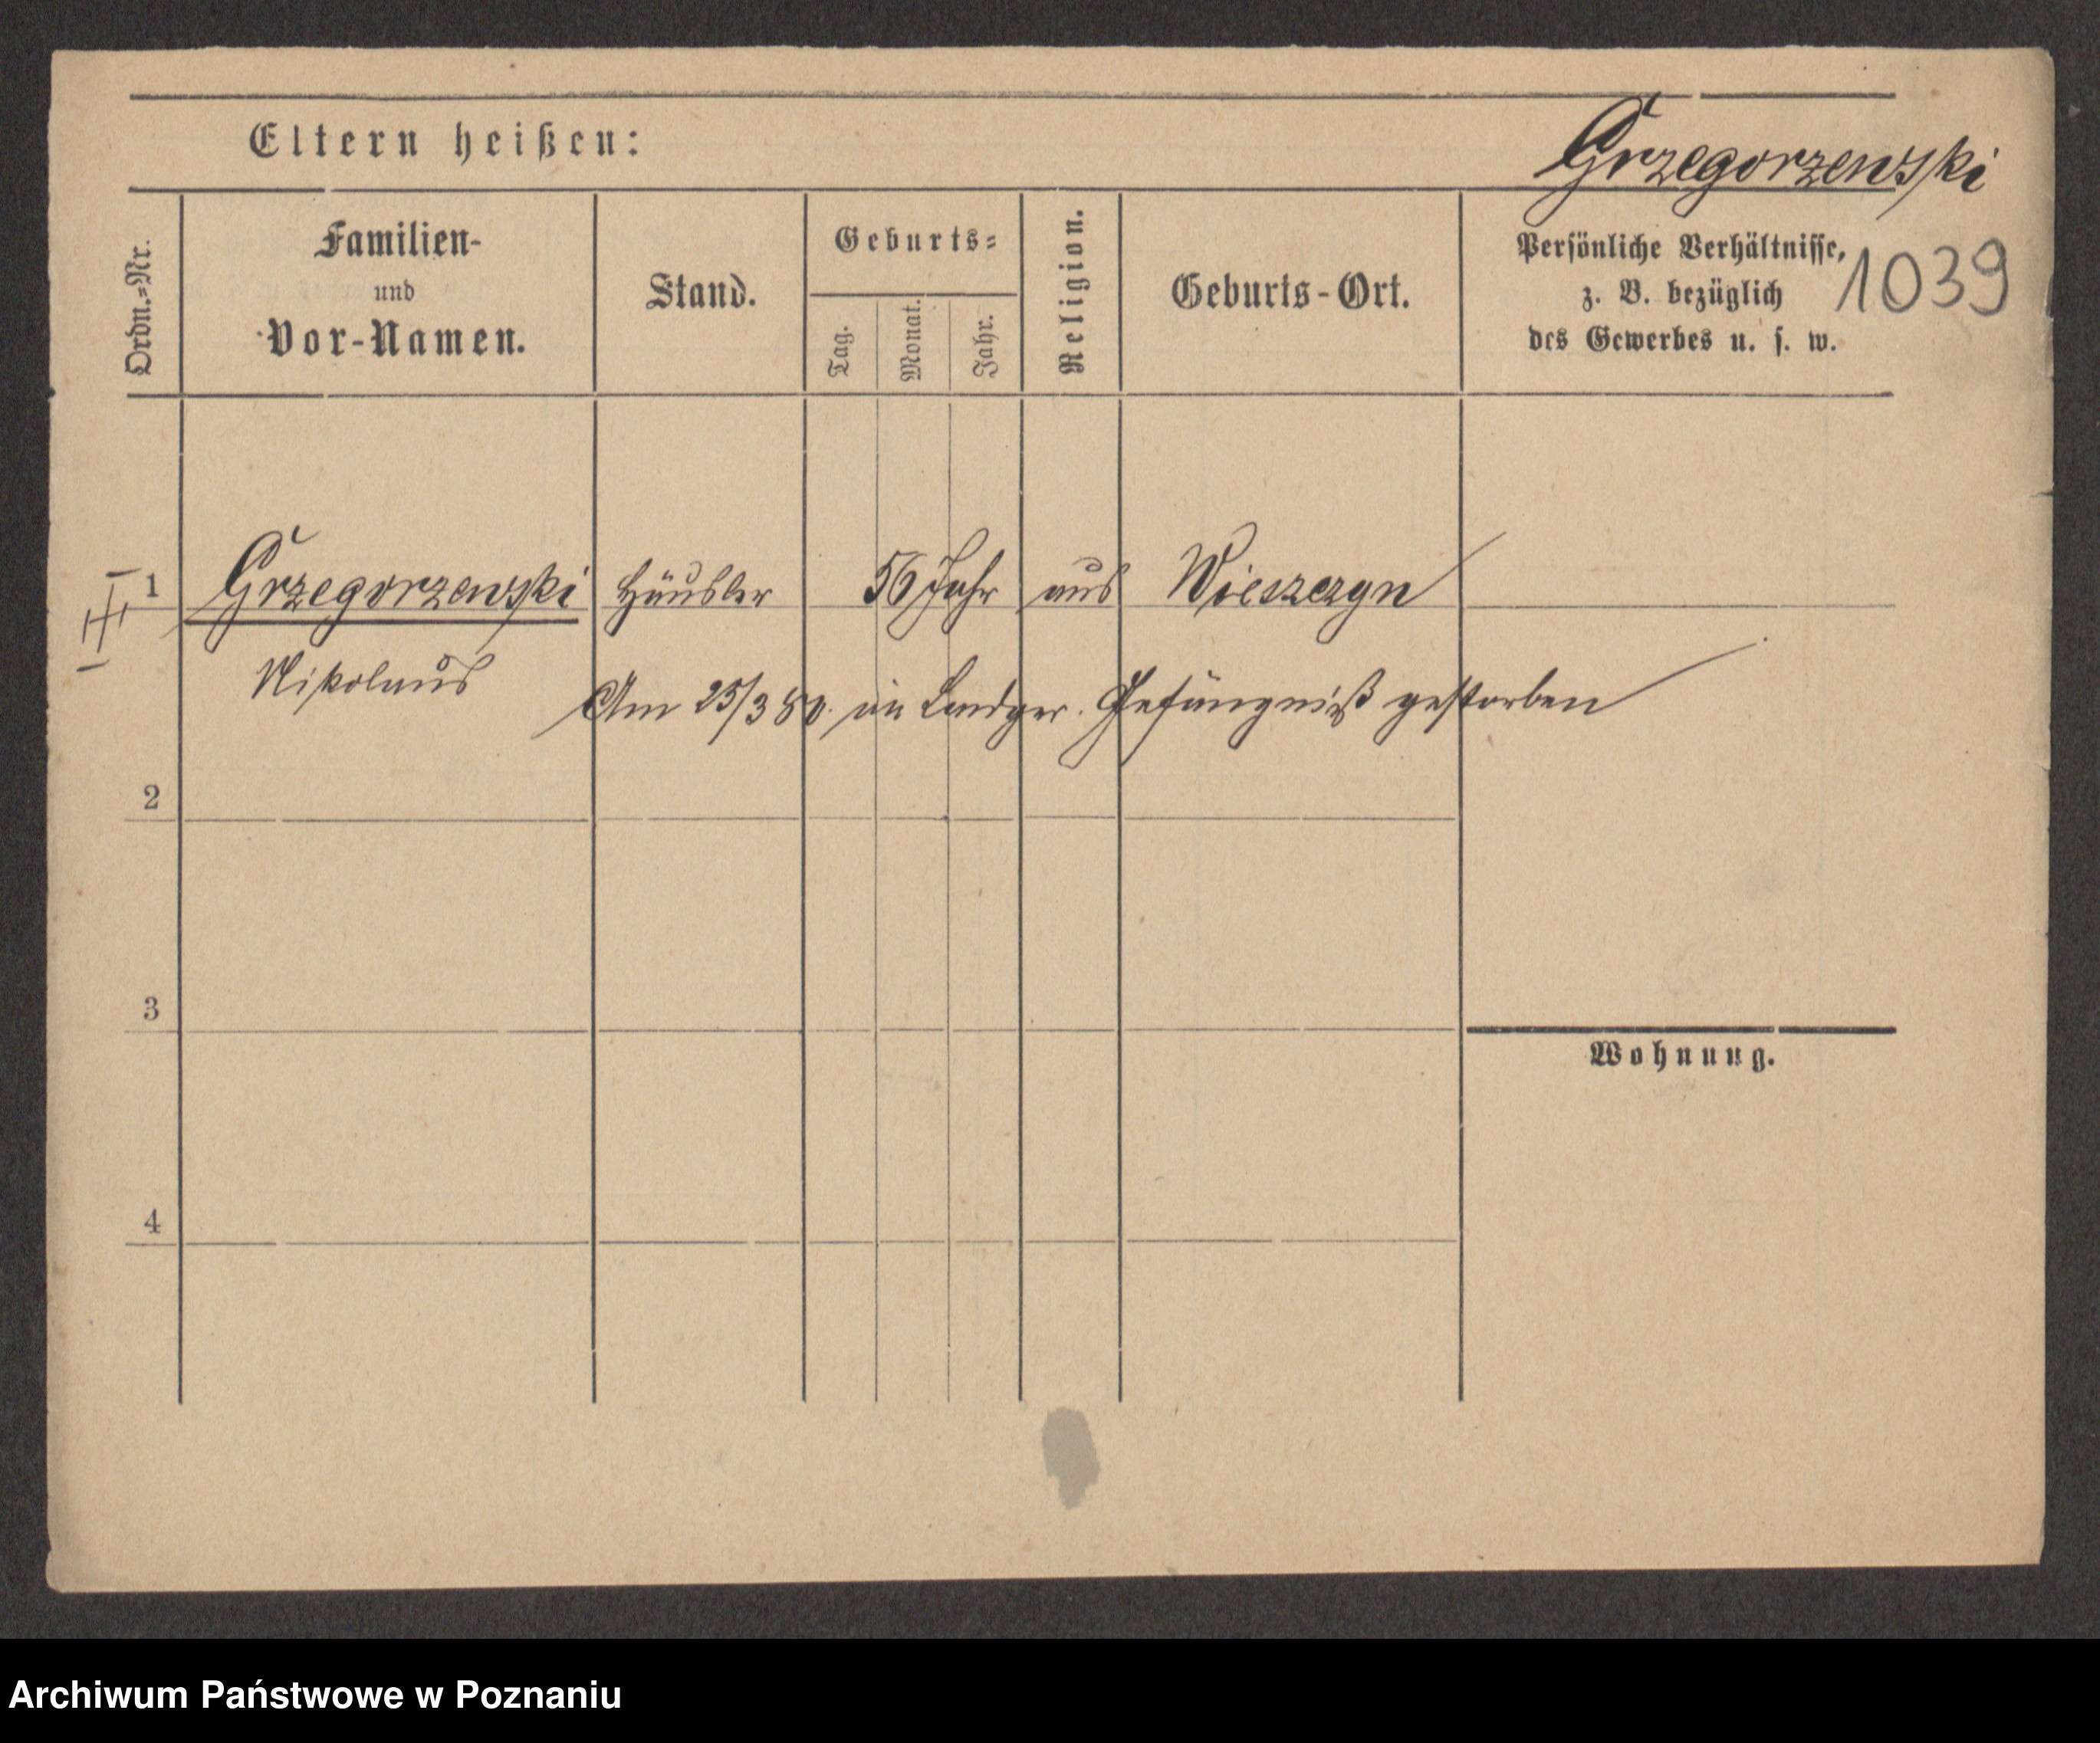 Eltern heißen:
Grzegorzewski
Ordn.=Nr.
Familien-
und
Vor-Namen.
Stand.
Geburts=
Tag.
Monat.
Jahr.
Religion.
Geburts-Ort.
Persönliche Verhältnisse,
z. B. bezüglich
des Gewerbes u. s. w.
1039
1 Grzegorzewski Häusler 56 Jahr aus Wieszczyn
Nikolaus
Am 25/3 80. im Landger. Gefängniß gestorben
2
3
Wohnung.
4
Archiwum Państwowe w Poznaniu